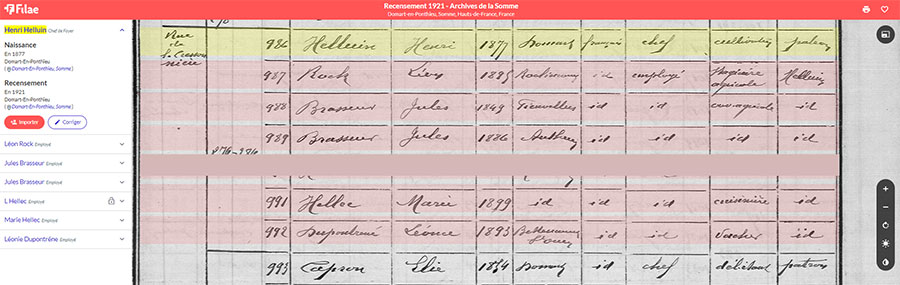 Filae
Recensement 1921 - Archives de la Somme
Domart-en-Ponthieu, Somme, Hauts-de-France, France
Henri Helluin Chef de Foyer
Naissance
En 1877
Domart-En-Ponthieu
( @Domart-En-Ponthieu, Somme )
Recensement
En 1921
Domart-En-Ponthieu
( @Domart-En-Ponthieu, Somme )
Importer Corriger
Léon Rock Employé
Jules Brasseur Employé
Jules Brasseur Employé
L Hellec Employé
Marie Hellec Employé
Léonie Dupontrène Employé
Rue de la
986 Helluin Henri 1877 Domart français chef cultivateur patron
987 Rock Léon 1885 id employé agricole Helluin
988 Brasseur Jules 1849 id id ouv agricole id
989 Brasseur Jules 1886 id id id id
991 Hellec Marie 1899 id id id cuisinière id
992 Léonie 1893 id id vacher id
993 Capron Elie 1864 Domart id chef débitant patron